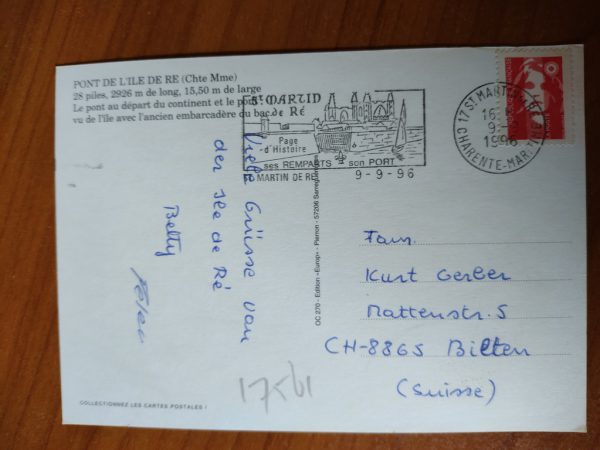 PONT DE L'ILE DE RE (Chte Mme)
28 piles, 2926 m de long, 15,50 m de large
Le pont au départ du continent et le pont
vu de l'île avec l'ancien embarcadère du bac
St MARTIN
de Ré
Page
d'Histoire
ses REMPARTS son PORT
MARTIN DE RE 9-9-96
17 ST MARTIN
16
9
1996
CHARENTE-MAR
Viele Grüsse von
der Ile de Ré
Betty
Peter
OC 270 - Edition «Europ» - Pierron - 57206 Sarreguemines
Fam.
Kurt Gerber
Mattenstr. 5
CH-8865 Bilten
(Suisse)
COLLECTIONNEZ LES CARTES POSTALES !